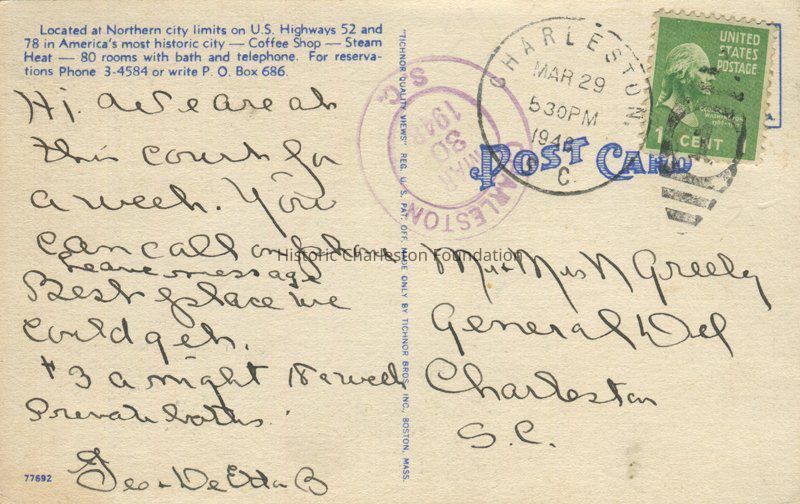 Located at Northern city limits on U.S. Highways 52 and
78 in America's most historic city — Coffee Shop — Steam
Heat — 80 rooms with bath and telephone. For reserva-
tions Phone 3-4584 or write P. O. Box 686.
Hi. We are at
this court for
a week. You
can call on phone
Leave message
Best place we
could get.
$3 a night 18 a week
Private baths.
Geo & De Etta B
77692
"TICHNOR QUALITY VIEWS" REG. U. S. PAT. OFF. MADE ONLY BY TICHNOR BROS., INC., BOSTON, MASS.
CHARLESTON
S. C.
MAR
30
CHARLESTON,
MAR 29
530 PM
C.
UNITED
STATES
POSTAGE
GEORGE
WASHINGTON
1 CENT
POST CARD
Historic Charleston Foundation
Mr & Mrs N Greely
General Del
Charleston
S.C.